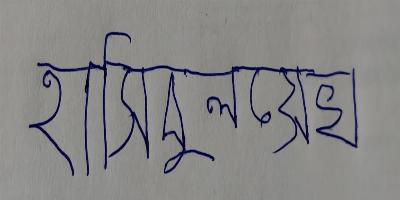 হাসিবুল সেখ